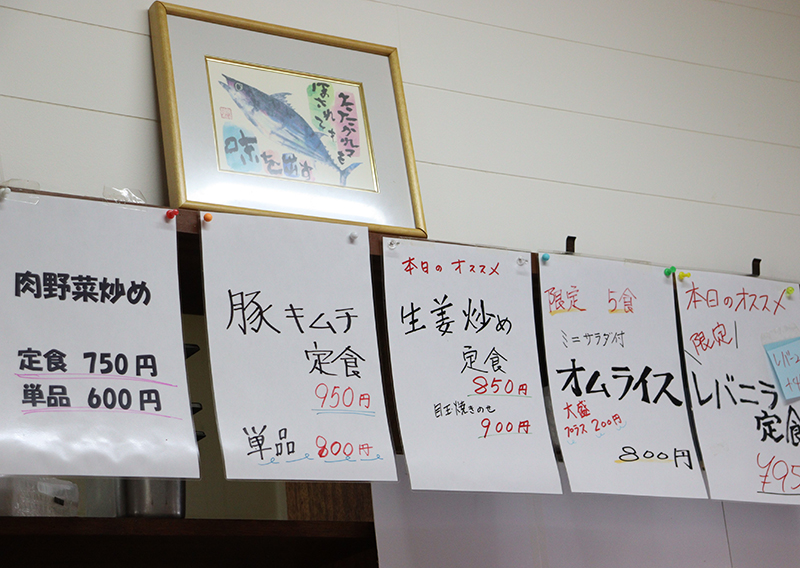 そたがれても
ほされても
味を出す
肉野菜炒め
定食 750円
単品 600円
豚キムチ
定食
950円
単品 800円
本日のオススメ
生姜炒め
定食
850円
目玉焼きのせ
900円
限定 5食
ミニサラダ付
オムライス
大盛
プラス200円
800円
本日のオススメ
限定!
レバニラ
定食
¥795